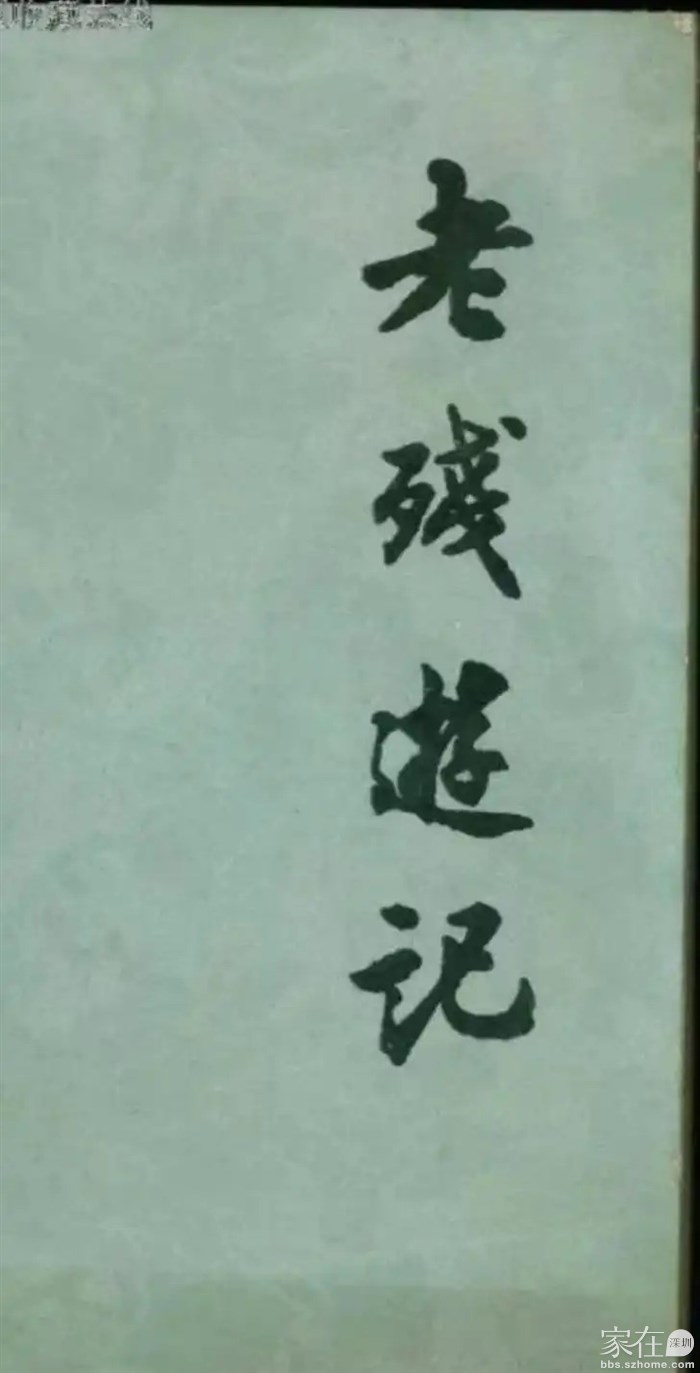 老殘遊記
家在深圳
bbs.szhome.com